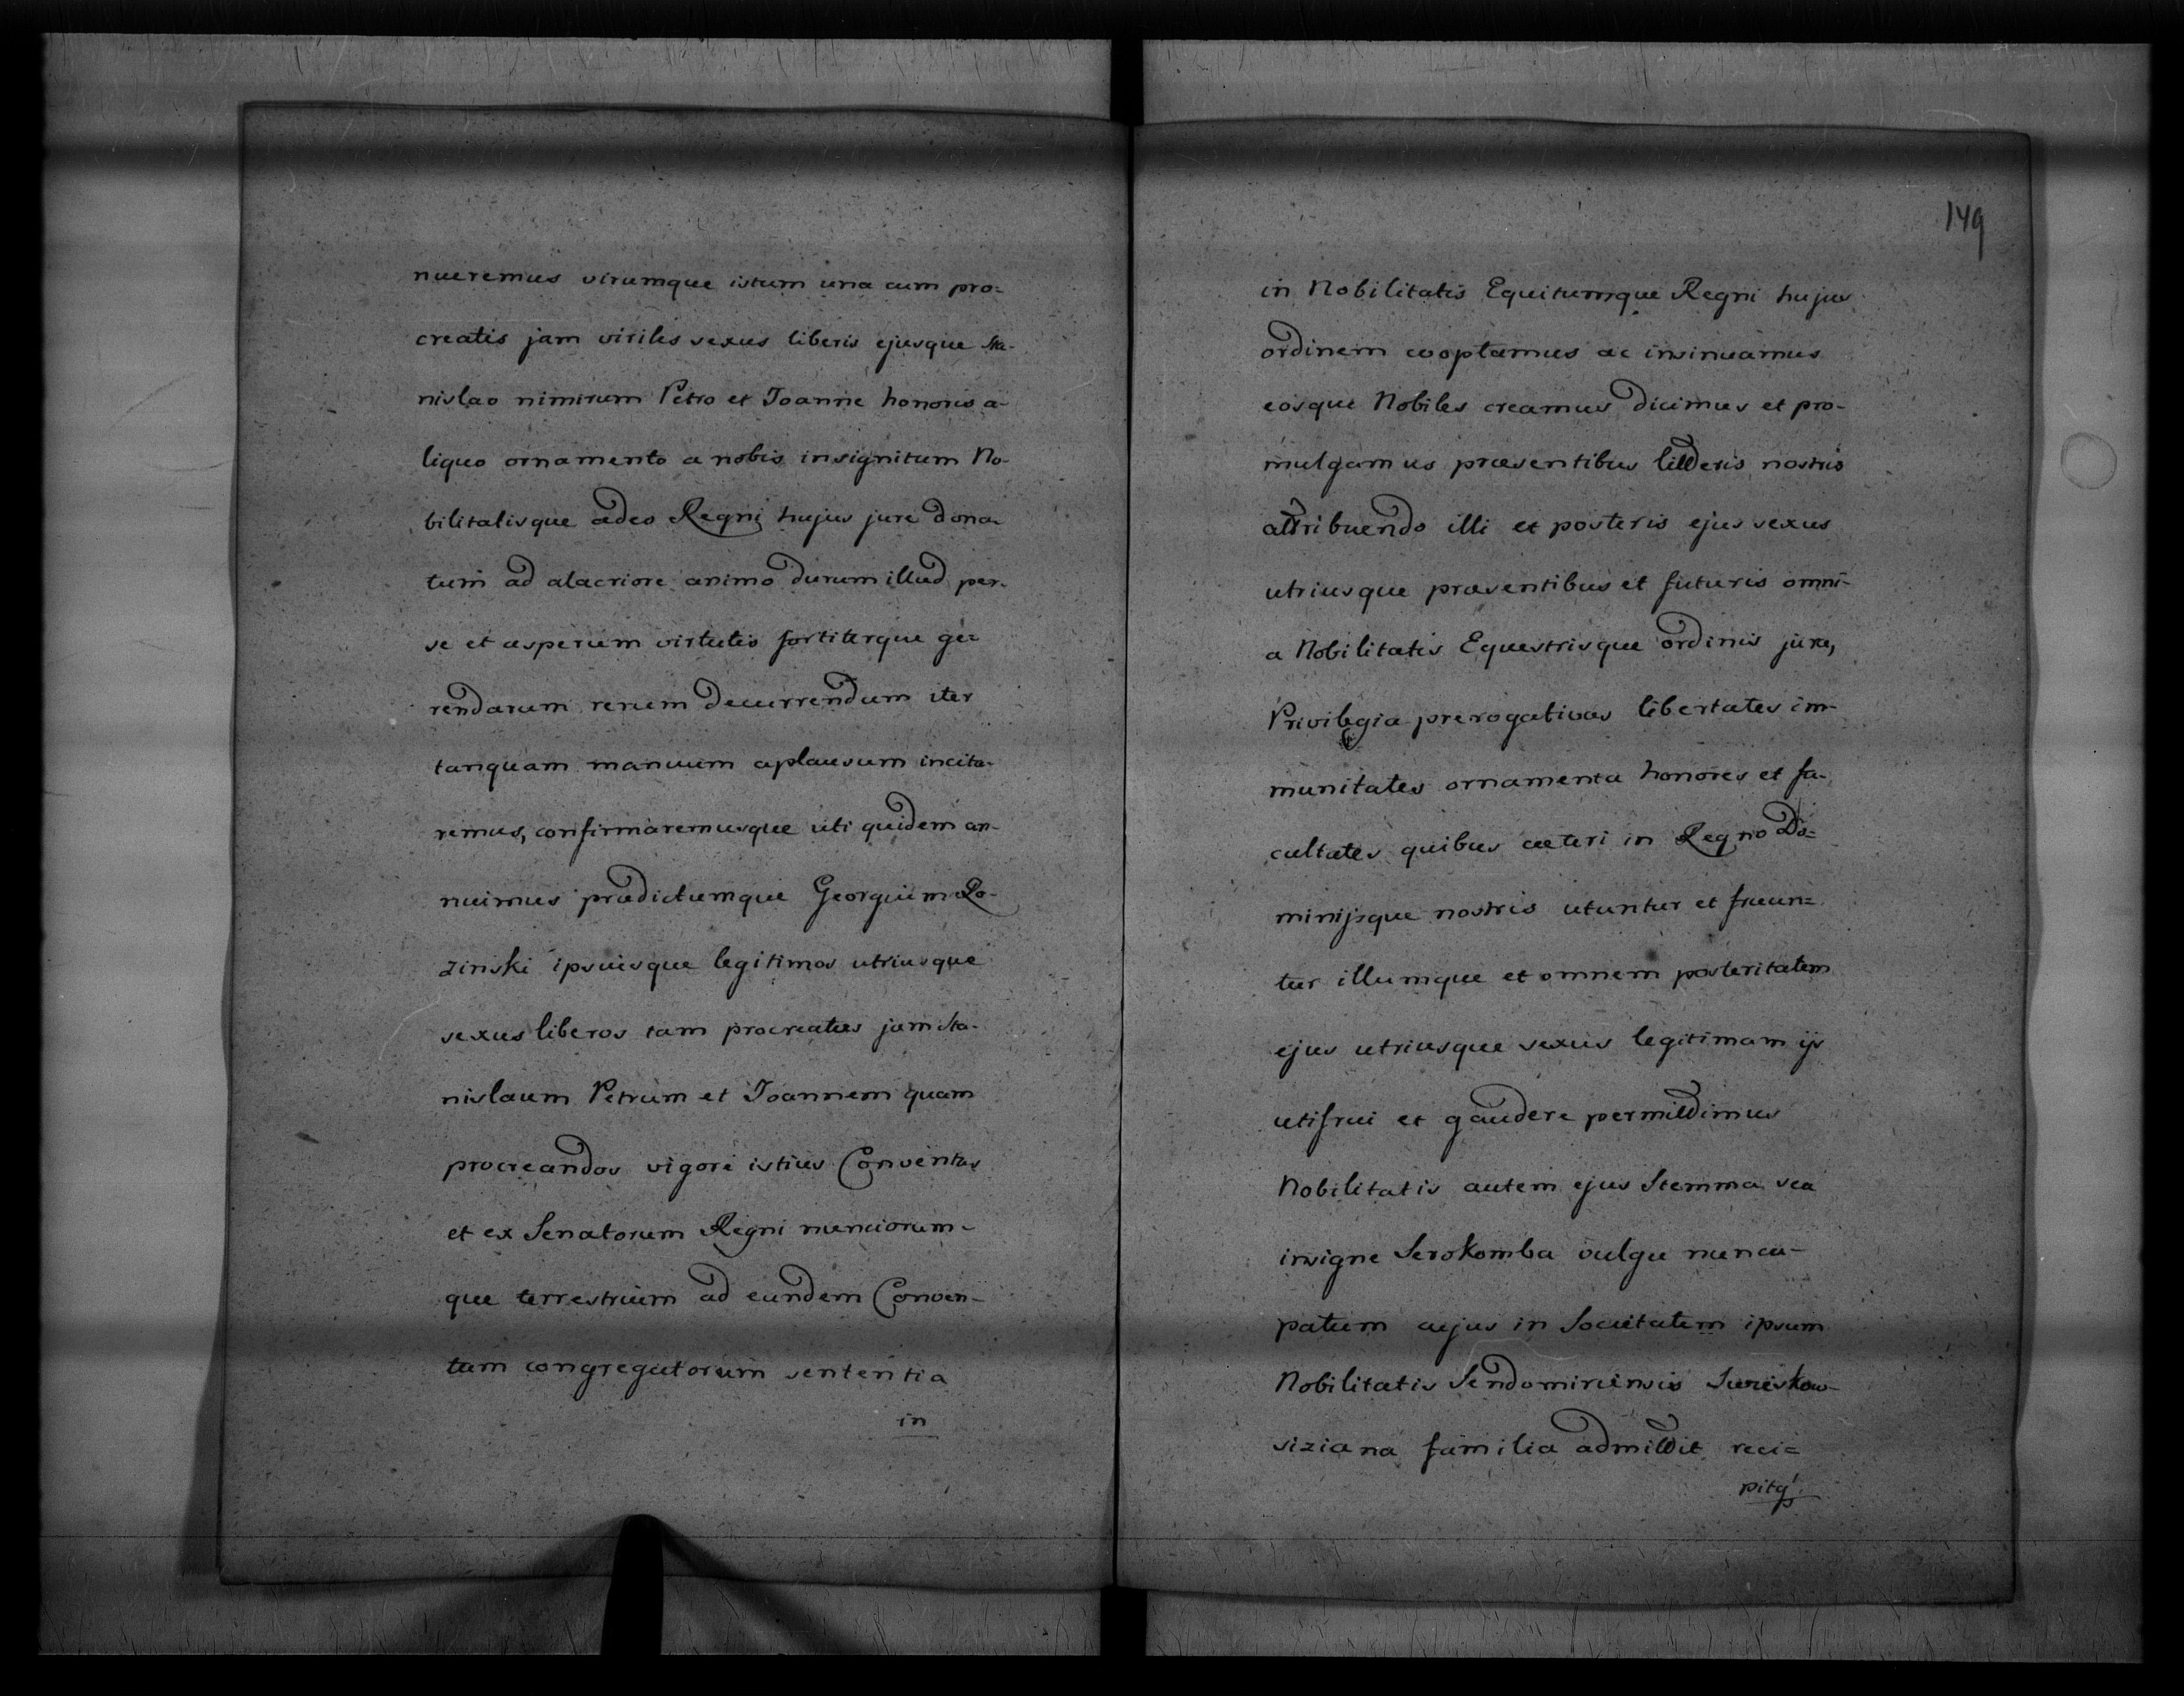 nueremus virumque istum una cum pro=
creatis jam virilis sexus liberis ejusque Sta-
nislao nimirum Petro et Joanne honoris a-
liquo ornamento a nobis insignitum No-
bilitalisque adeo Regni hujus jure dona-
tum ad alacriore animo durum illud per-
se et asperum virtutis fortiterque ge=
rendarum rerum decurrendum iter
tanquam manuum aplausum incita-
remus, confirmaremusque uti quidem an-
nuimus prædictumque Georgium Lo-
zinski ipsuisque legitimos utriusque
sexus liberos tam procreatus jam Sta-
nislaum Petrum et Joannem quam
procreandos vigore istius Conventus
et ex Senatorum Regni nunciorum-
que terrestrium ad eundem Conven-
tum congregatorum sententia
in
149
in Nobilitatis Equitumque Regni hujus
ordinem cooptamus ac insinuamus
eosque Nobiles creamus dicimus et pro-
mulgamus præsentibus litteris nostris
attribuendo illi et posteris ejus sexus
utriusque præsentibus et futuris omni-
a Nobilitatis Equestrisque ordinis jura,
Privilegia prerogativas libertates im-
munitates ornamenta honores et fa-
cultates quibus cæteri in Regno Do=
minijsque nostris utuntur et fruun=
tur illumque et omnem posteritatem
ejus utriusque sexus legitimam ijs
utifrui et gaudere permittimus
Nobilitatis autem ejus Stemma sea
insigne Serokomba vulgu nuncu-
patum cujus in Societatem ipsum
Nobilitatis Sendomiriensis
siziana familia admittit reci=
pitq́